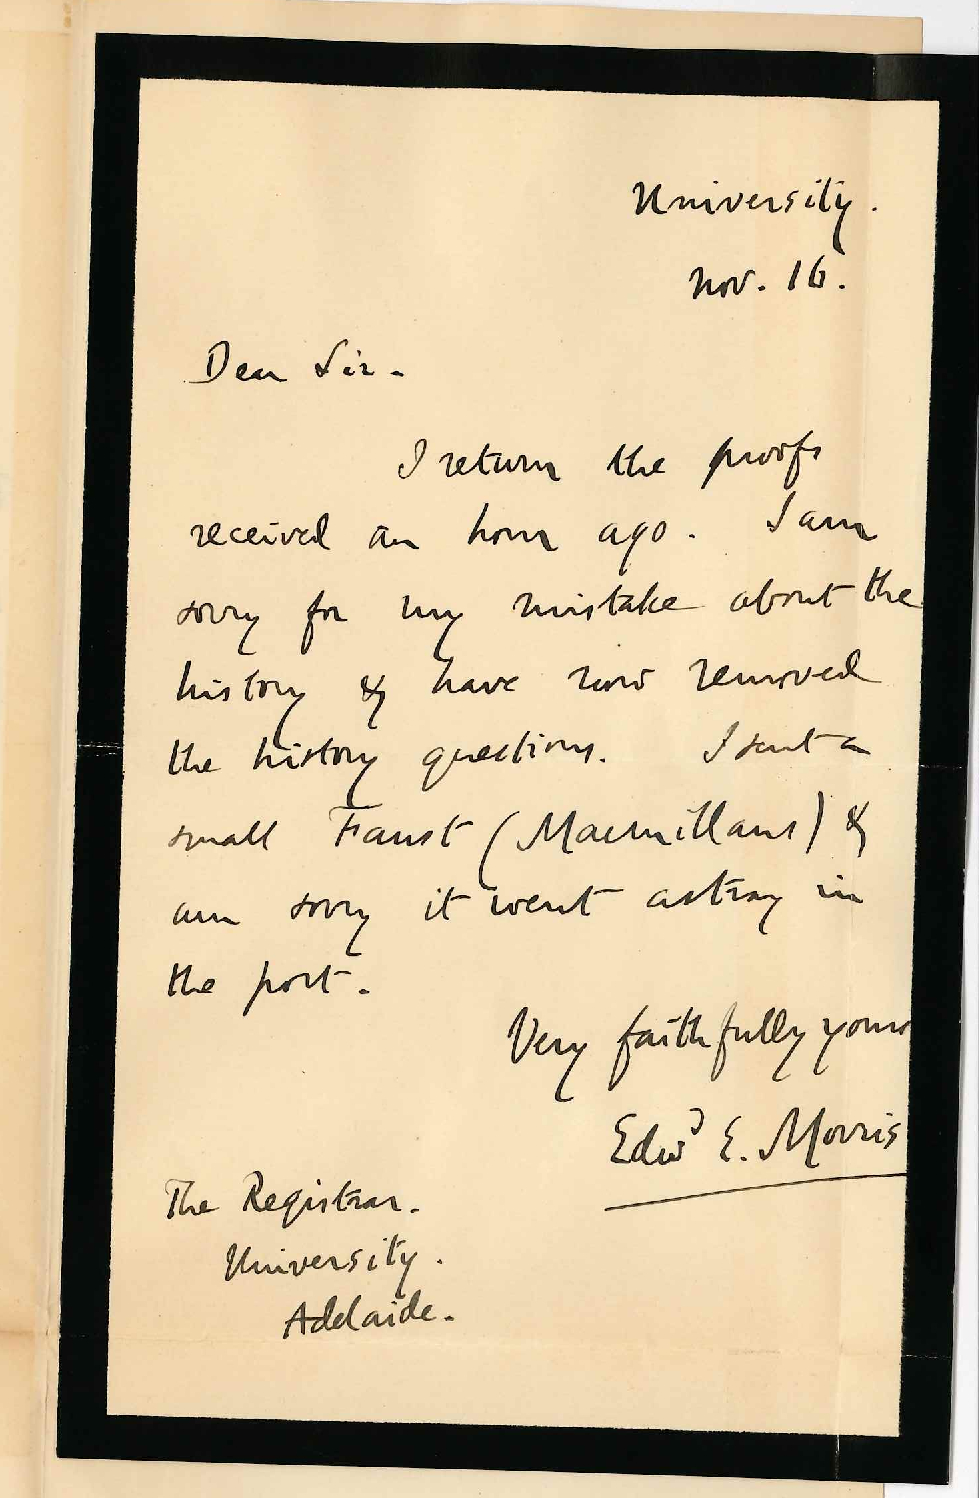 University.
Nov. 16.
Dear Sir.
I return the proofs
received an hour ago. I am
sorry for my mistake about the
history & have now removed
the history questions. I sent a
small Faust (Macmillans) &
am sorry it went astray in
the post.
Very faithfully yours
Edwd E. Morris
The Registrar.
University.
Adelaide.